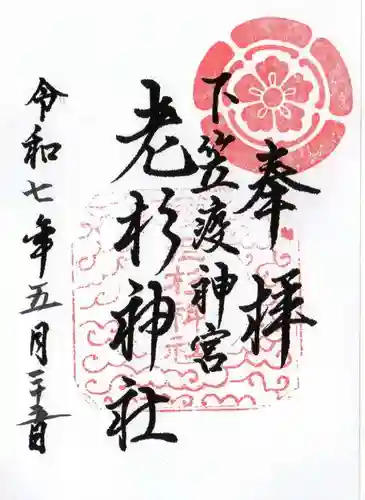 奉拝
下笠渡神宮
老杉神社
令和七年五月二十五日